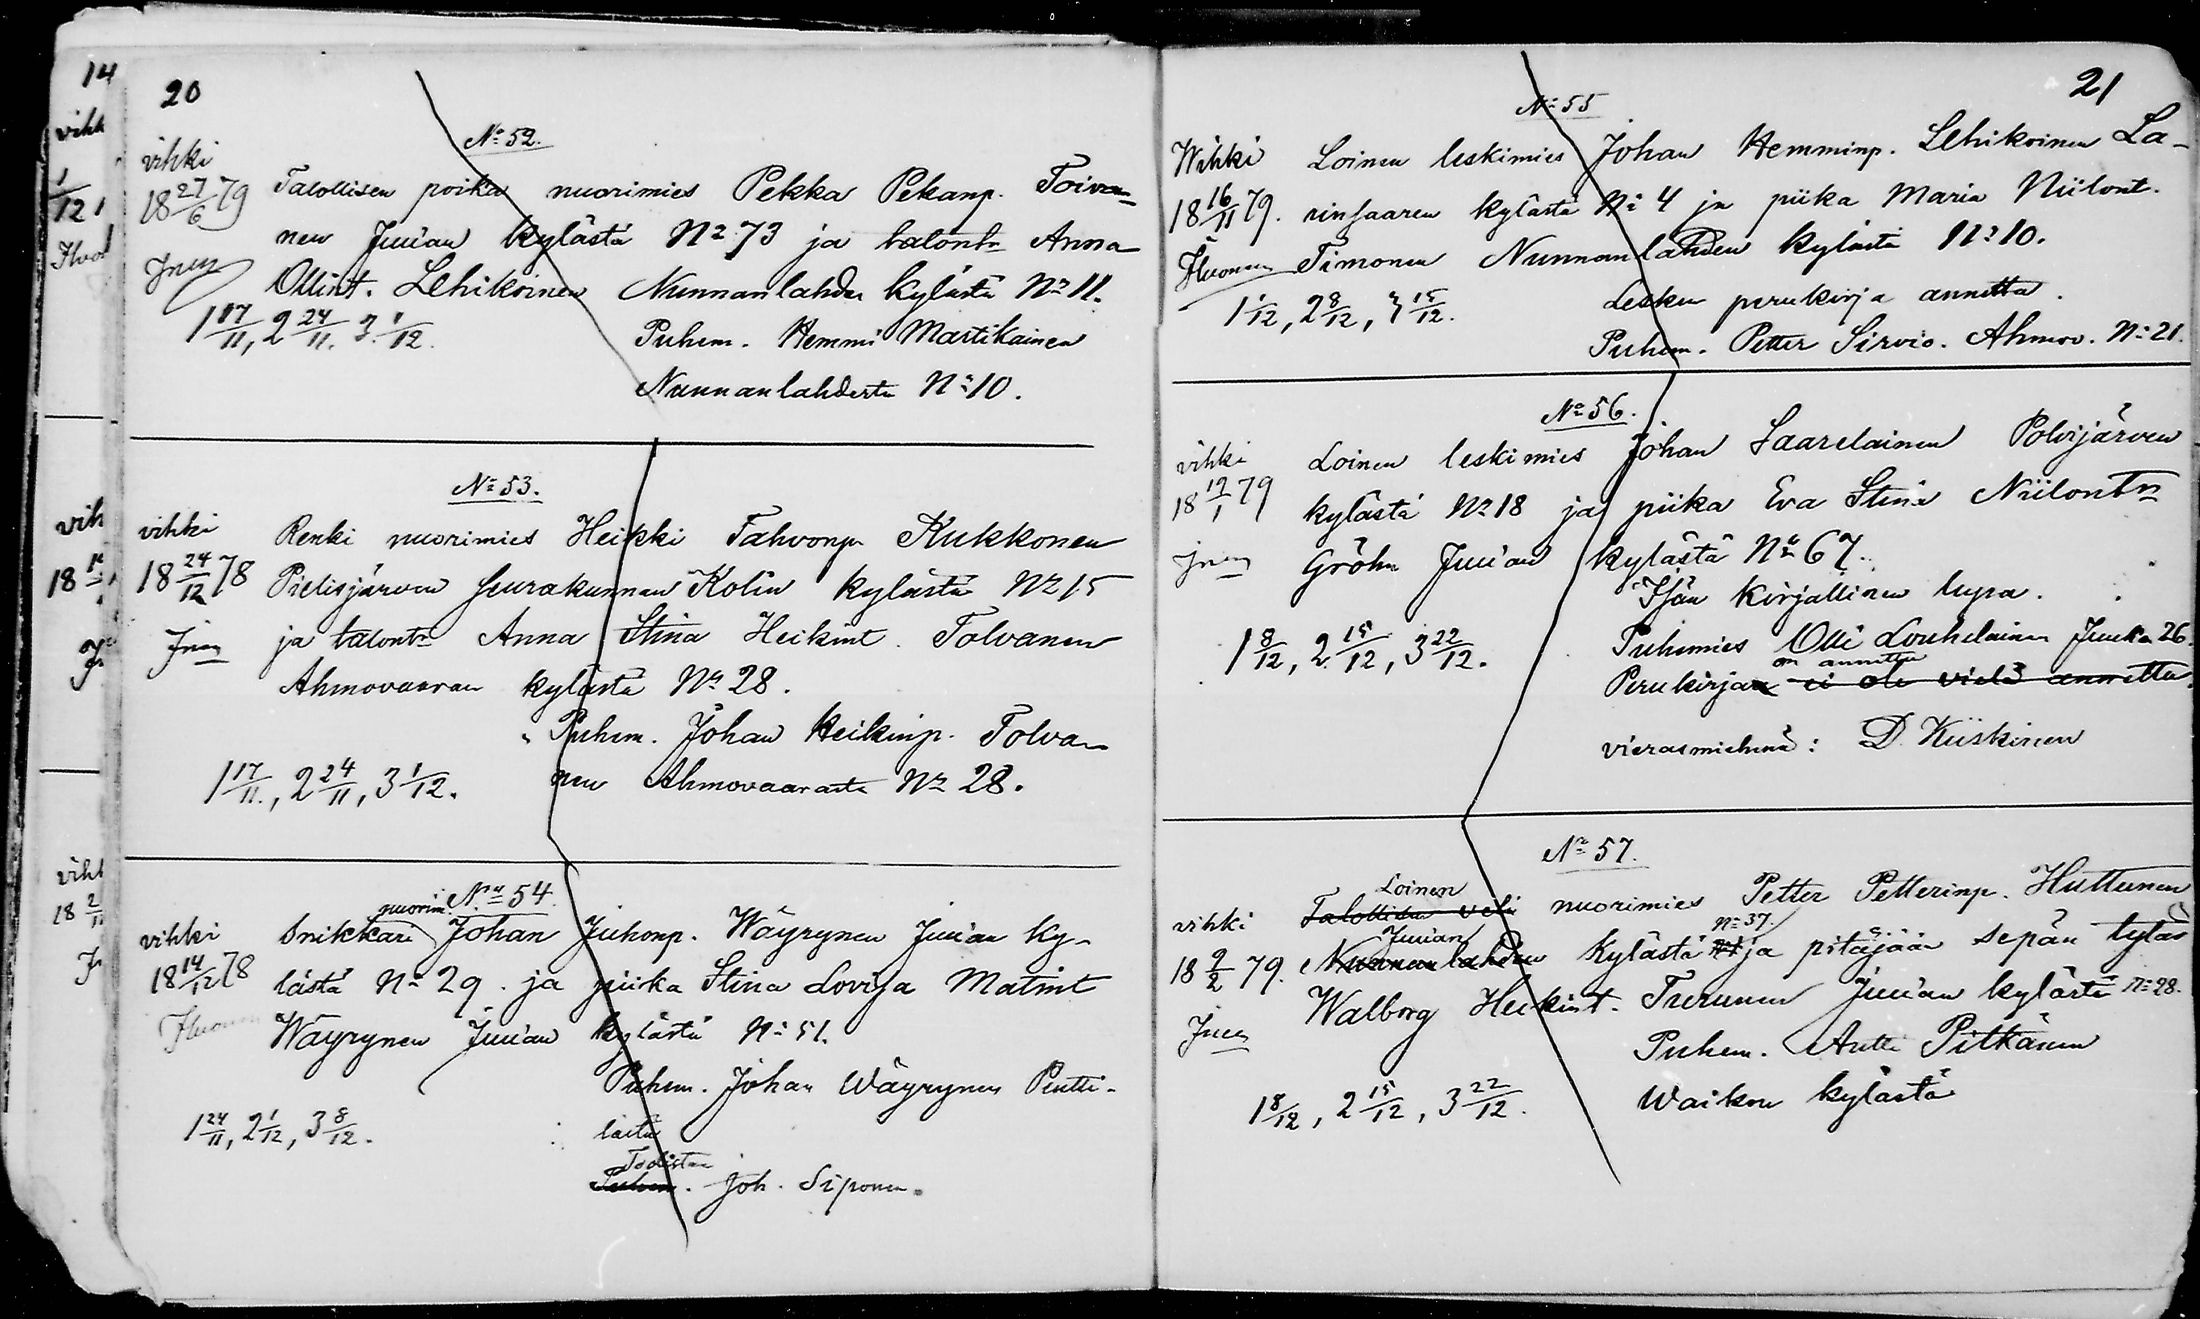 20
No 52.
vihki
18 27/6 79
Talollisen poika nuorimies Pekka Pekanp. Toiva-
nen Juuan kylästä No 73 ja talontr Anna
Ollint. Lehikoinen Nunnanlahden kylästä No 11.
1 17/11, 2 24/11. 3. 1/12.
Puhem. Hemmi Martikainen
Nunnanlahdesta No 10.
No 53.
vihki
18 24/12 78
Renki nuorimies Heikki Tahvonp. Kukkonen
Pielisjärven seurakunnan Kolin kylästä No 15
ja talontr Anna Stina Heikint. Tolvanen
Ahmovaaran kylästä No 28.
Puhem. Johan Heikinp. Tolva-
nen Ahmovaarasta No 28.
1 17/11., 2 24/11, 3 1/12.
No 54.
vihki
18 14/12 78
nuorim.
Snikkari Johan Juhonp. Wäyrynen Juuan ky-
lästä No 29. ja piika Stina Lovisa Matint
Wäyrynen Juuan kylästä No 51.
Puhem. Johan Wäyrynen Pentti-
lästä
1 24/11, 2 1/12, 3 8/12.
Todistaa
Puhem. Joh. Siponen.
21
No 55
Wihki
18 16/11 79.
Loinen leskimies Johan Hemminp. Lehikoinen La-
rinsaaren kylästä No 4 ja piika Maria Niilont.
Timonen Nunnanlahden kylästä No 10.
Lesken perukirja annettu.
1 1/12, 2 8/12, 3 15/12.
Puhem. Petter Sirviö. Ahmov. No 21.
No 56.
vihki
18 19/1 79
Loinen leskimies Johan Saarelainen Polvijärven
kylästä No 18 ja piika Eva Stina Niilontr
Gröhn Juuan kylästä No 67.
Isän kirjallinen lupa.
1 8/12, 2 15/12, 3 22/12.
Puhemies Olli Louhelainen Juuka 26.
on annettu
Perukirjaa ei ole vielä annettu.
vierasmiehenä: D. Kiiskinen
No 57.
vihki
18 2/2 79.
Loinen
Talollisen veli nuorimies Petter Petterinp. Huttunen
Juuan
No 37.
Nunnanlahden kylästä ja pitäjään sepän tytär
Walborg Heikint. Turunen Juuan kylästä No 28.
Puhem. Antti Pitkänen
Waikon kylästä
1 8/12, 2 15/12, 3 22/12.